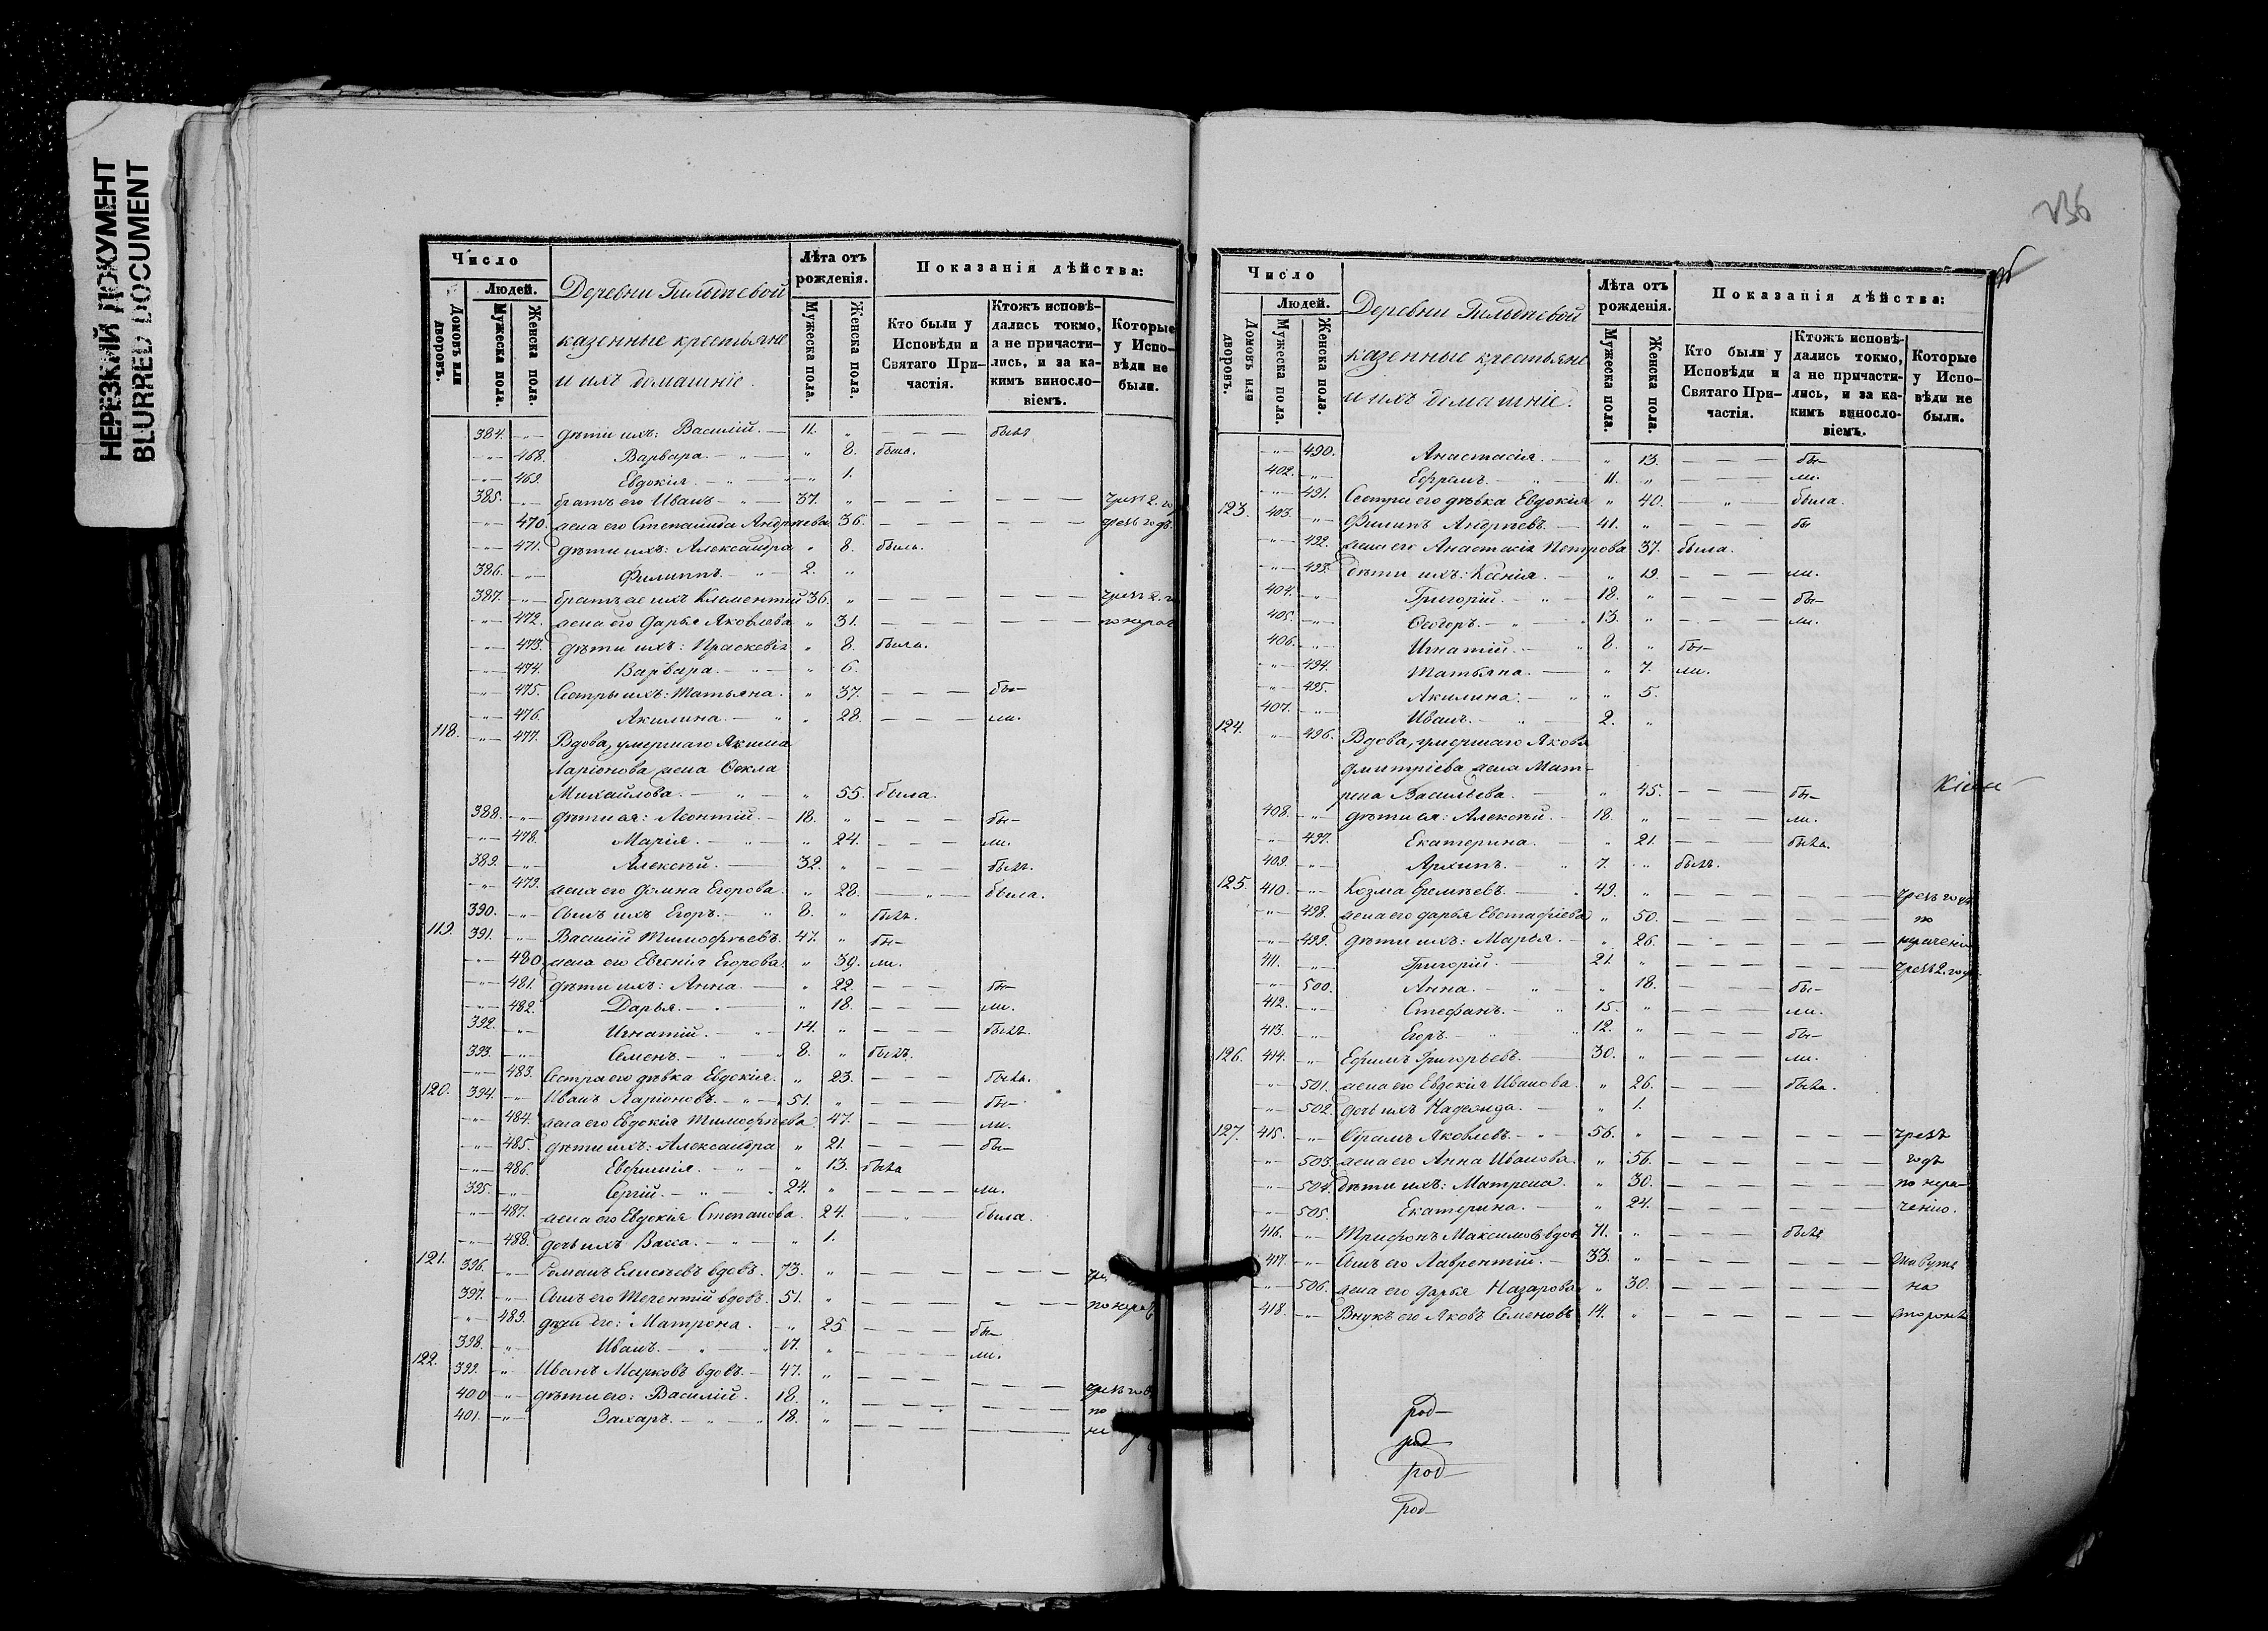 НЕРЕЗКИЙ ДОКУМЕНТ
BLURRED DOCUMENT
Число
Людей.
Домовъ или дворовъ.
Мужеска пола.
Женска пола.
казенные крестьяне
и ихъ домашніе.
Лѣта отъ рожденія.
Мужеска пола.
Женска пола.
Показанія дѣйства:
Кто были у Исповѣди и Святаго Причастія.
Ктожъ исповѣдались токмо, а не причастились, и за какимъ винословіемъ.
Которые у Исповѣди не были.
384. дѣти ихъ: Василій. 11. былъ
468. Варвара. 8. была.
469. Евдокія. 1.
385. братъ его Иванъ 37. чрезъ 2. го
470. жена его Степанида Андрѣева 36. чрезъ годъ
471. дѣти ихъ: Александра 8. была.
386. Филиппъ. 2.
387. братъ же ихъ Климентій 36. чрезъ 2. го
472. жена его Дарья Яковлева 31. по нерач
473. дѣти ихъ: Праскевія 8. была.
474. Варвара. 6.
475. Сестры ихъ: Татьяна. 37. бы-
476. Акилина. 28. ли.
118. 477. Вдова, умершаго Якима
Ларіонова жена Ѳекла
Михайлова. 55. была.
388. дѣти ея: Леонтій. 18. бы-
478. Марія. 24. ли.
389. Алексѣй. 32. былъ.
479. жена его Домна Егорова. 28. была.
390. Сынъ ихъ Егоръ. 8. былъ.
119. 391. Василій Тимофѣевъ. 47. бы-
480. жена его Евгенія Егорова. 39. ли.
481. дѣти ихъ: Анна. 22. бы-
482. Дарья. 18. ли.
392. Игнатій. 14. былъ.
393. Семенъ. 8. былъ.
483. Сестра его дѣвка Евдокія. 23. была.
120. 394. Иванъ Ларіоновъ. 51. бы-
484. жена его Евдокія Тимофѣева 47. ли.
485. дѣти ихъ: Александра 21. бы-
486. Евфимія. 13. была
395. Сергій. 24. ли.
487. жена его Евдокія Степанова. 24. была.
488. дочь ихъ Васса. 1.
121. 396. Романъ Елисѣевъ вдовъ. 73.
397. Сынъ его Терентій вдовъ. 51. по нерач
489. дѣти его: Матрона. 25 бы-
398. Иванъ. 17. ли.
122. 399. Иванъ Марковъ вдовъ. 47.
400 дѣти его: Василій. 18. чрезъ год
401. Захаръ. 18. по
не
Число
Людей.
Домовъ или дворовъ.
Мужеска пола.
Женска пола.
казенные крестьяне
и ихъ домашніе.
Лѣта отъ рожденія.
Мужеска пола.
Женска пола.
Показанія дѣйства:
Кто были у Исповѣди и Святаго Причастія.
Ктожъ исповѣдались токмо, а не причастились, и за какимъ винословіемъ.
Которые у Исповѣди не были.
490. Анастасія. 13. бы-
402. Ефремъ. 11. ли.
491. Сестра его дѣвка Евдокія 40. была.
123. 403. Филипъ Андрѣевъ. 41. бы
492. жена его Анастасія Петрова 37. была.
493. дѣти ихъ: Ксенія. 19. ли.
404. Григорій. 18. бы-
405. Ѳеодоръ. 13. ли.
406. Игнатій. 8. бы-
494. Татьяна. 7. ли.
495. Акилина. 5.
407. Иванъ. 2.
124. 496. Вдова, умершаго Якова
Дмитріева жена Мат-
рена Васильева. 45. бы-
408. дѣти ея: Алексѣй. 18. ли.
497. Екатерина. 21. была.
409. Архипъ. 7. былъ.
125. 410. Козма Еремѣевъ. 49. чрезъ годъ
498. жена его Дарья Евстафіева 50. по
499. дѣти ихъ: Марья. 26. нерачению
411. Григорій. 21. чрезъ 2. года
500. Анна. 18. бы-
412. Стефанъ. 15. ли.
413. Егоръ. 12. бы-
126. 414. Ефимъ Григорьевъ. 30. ли.
501. жена его Евдокія Иванова. 26. была.
502. дочь ихъ Надежда. 1.
127. 415. Яковлевъ. 56. чрезъ
503. жена его Анна Иванова. 56. годъ
504. дѣти ихъ: Матрена. 30. по нера-
505. Екатерина. 24. ченію.
416. Трифонъ Максимовъ вдов. 71. былъ
417. Сынъ его Лаврентій. 33.
506. жена его Дарья Назарова 30. на
418. Внукъ его Яковъ Семеновъ 14. сторонѣ
род-
род
род-
род-